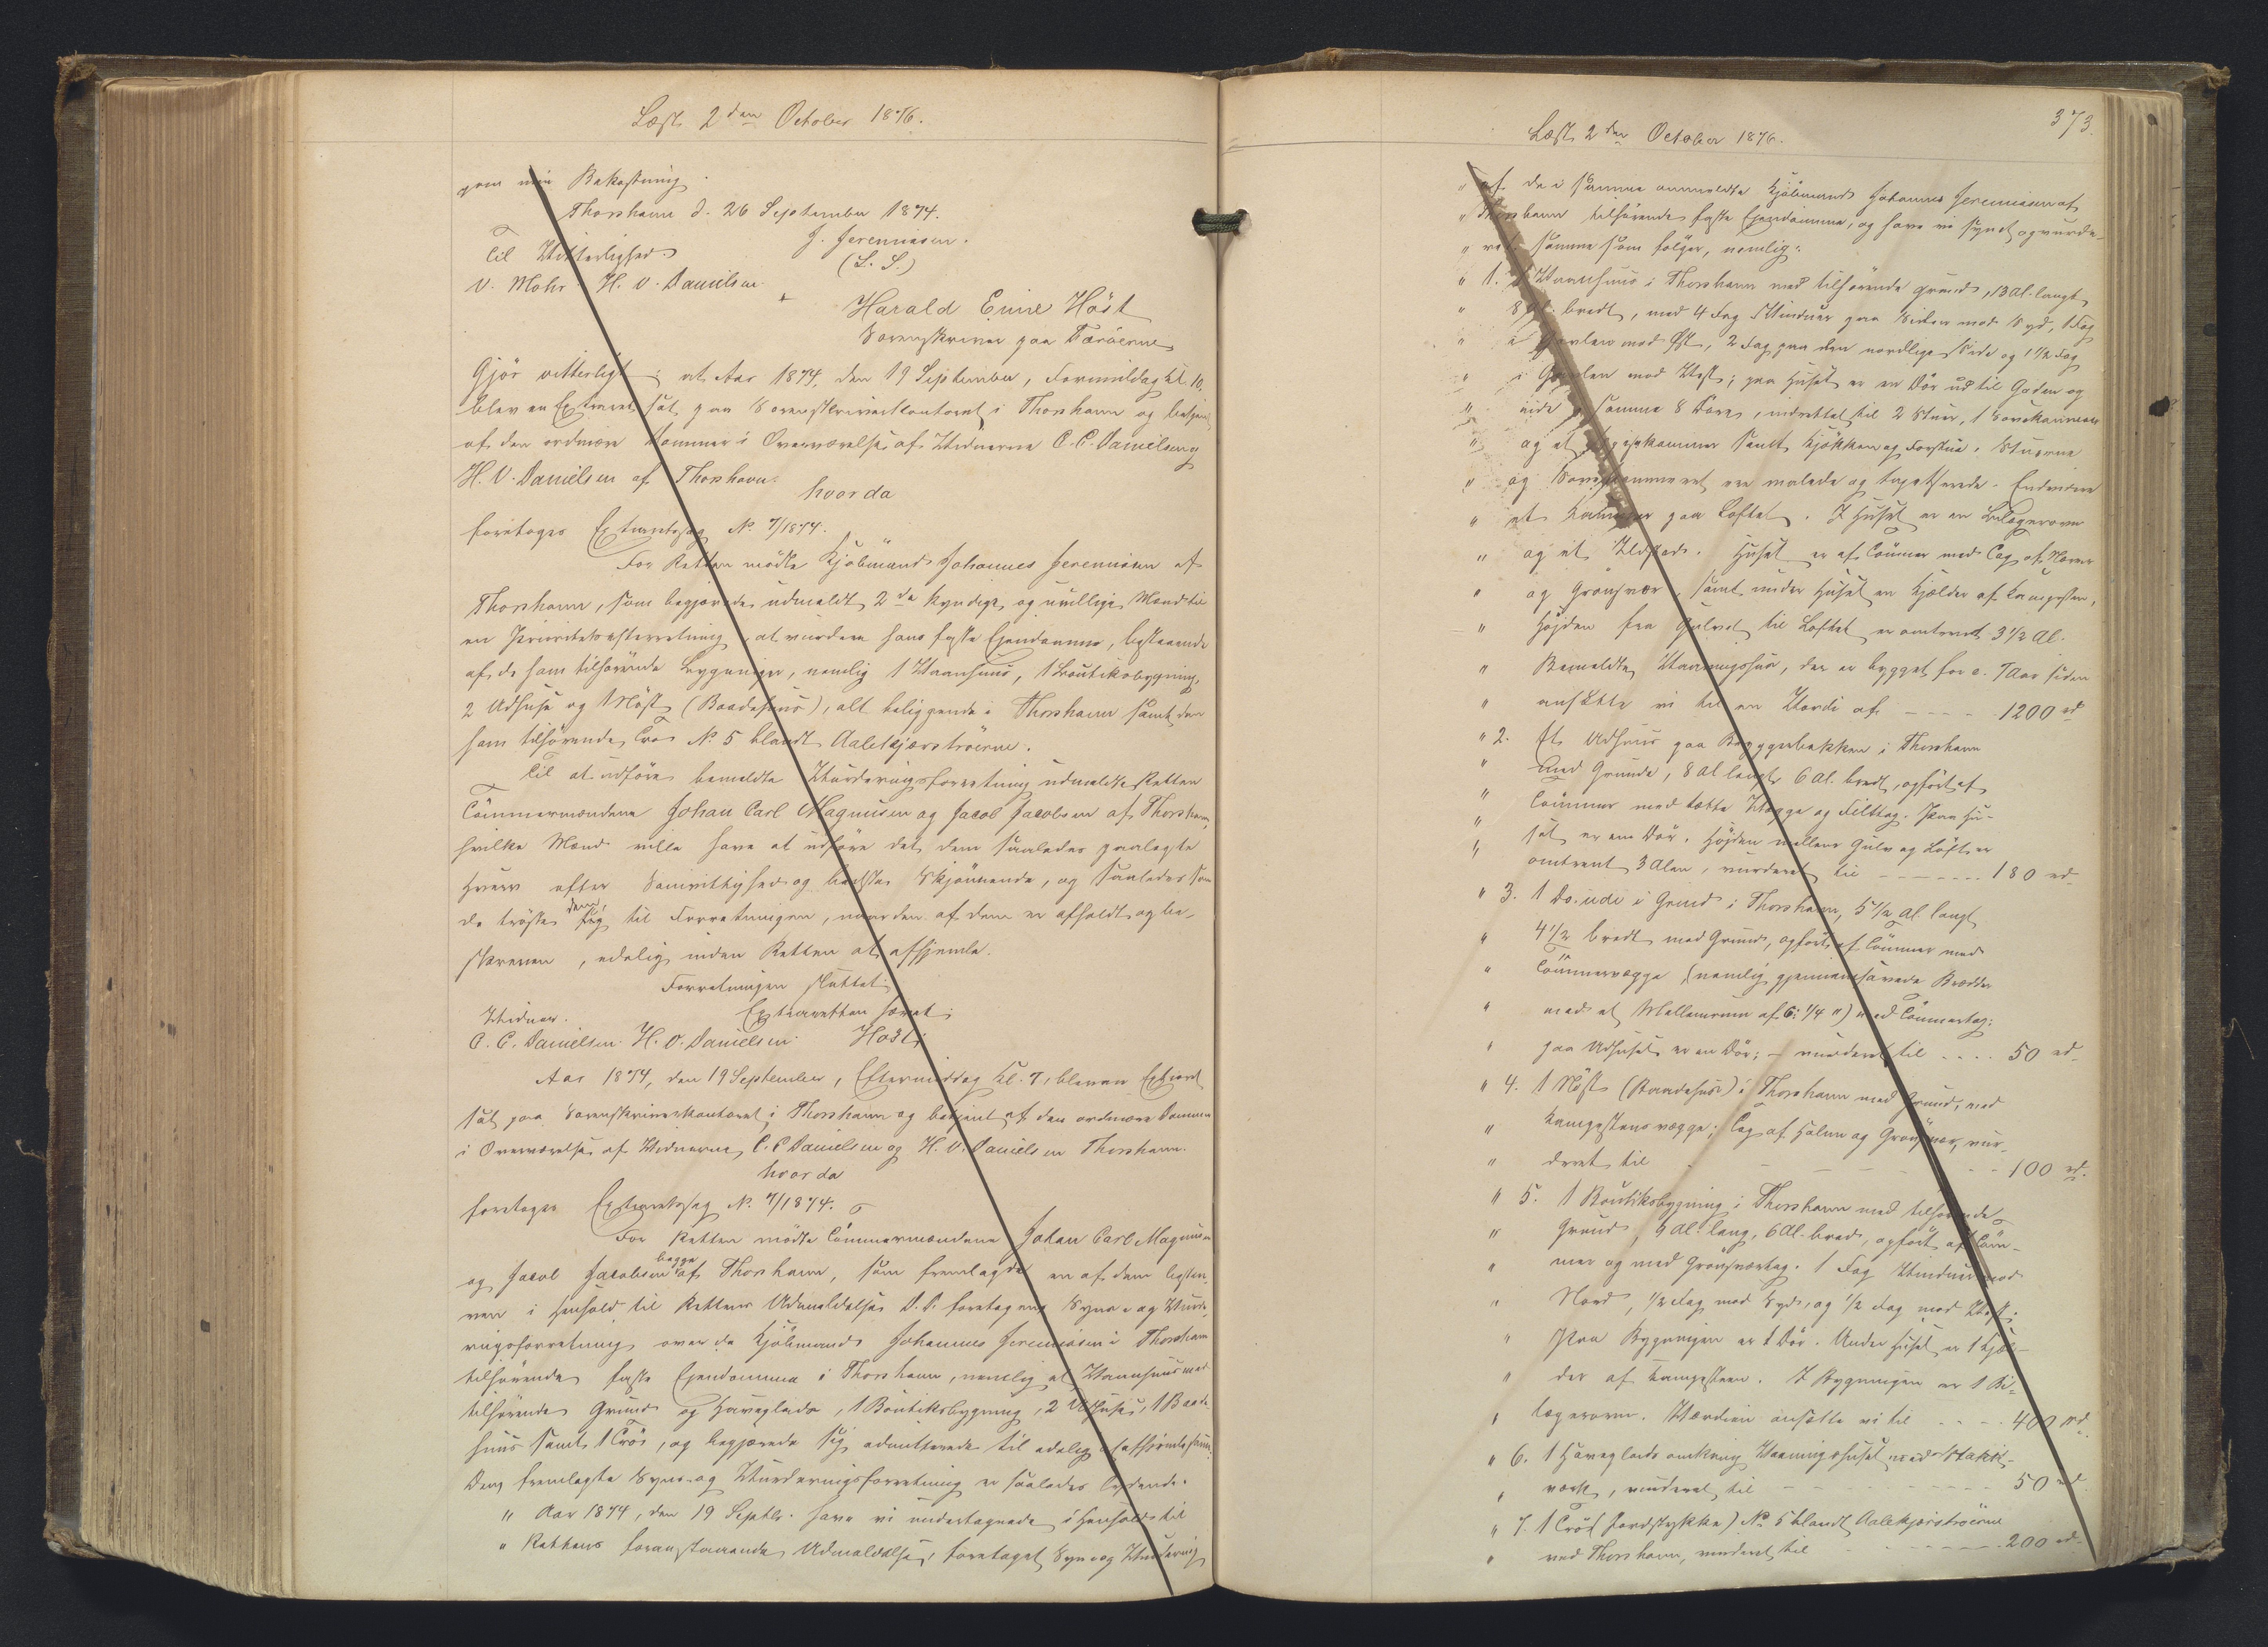 Læst 2den October 1876.
paa min Bekostning.
Thorshavn d. 26 September 1874.
J. Jeremiasen.
(L. S.)
Til Vitterlighed
V. Mohr. H. V. Danielsen.
Harald Emil Høst
Sorenskriver paa Færøerne
Gjør vitterligt; at Aar 1874, den 19 September, Formiddag Kl. 10,
blev en Extraret sat paa Sorenskriverkontoret i Thorshavn og betjent
af den ordinære Dommer i Overværelse af Vidnerne C. C. Danielsen og
H. V. Danielsen af Thorshavn.
hvorda
foretoges Extraretssag No. 7/1874.
For Retten mødte Kjøbmand Johannes Jeremiasen af
Thorshavn, som begjærede udmeldt 2de kyndige og uvillige Mænd til
en Prioritetsefterretning at vurdere hans faste Ejendomme, bestaaende
af de ham tilhørende Bygninger, nemlig 1 Vaanhuus, 1 Boutiksbygning,
2 Udhuse og 1 Nøst (Baadehuus), alt beliggende i Thorshavn samt den
ham tilhørende Trø No. 5 blandt Aalekjærstrøerne.
Til at udføre bemeldte Vurderingsforretning udmeldte Retten
Tømmermændene Johan Carl Magnusen og Jacob Jacobsen af Thorshavn,
hvilke Mænd ville have at udføre det dem saaledes paalagte
Hverv efter Samvittighed og bedste Skjønnende, og saaledes som
de trøste dem til Forretningen, naar den af dem er afholdt og be-
skreven, edelig inden Retten at afhjemle.
Forretningen sluttet.
Extraretten hævet.
Vidner. Høst
C. C. Danielsen. H. V. Danielsen.
Aar 1874, den 19 September, Eftermiddag Kl. 7, blev en Extraret
sat paa Sorenskriverkontoret i Thorshavn og betjent af den ordinære Dommer
i Overværelse af Vidnerne C. C. Danielsen og H. V. Danielsen Thorshavn.
hvorda
foretoges Extraretssag No. 7/1874.
For Retten mødte Tømmermændene Johan Carl Magnusen
og Jacob Jacobsen begge af Thorshavn, som fremlagde en af dem beskre-
ven i Henhold til Rettens Udmeldelse D. D. foretagen Syns- og Vurde-
ringsforretning over de Kjøbmand Johannes Jeremiasen i Thorshavn
tilhørende faste Ejendomme i Thorshavn, nemlig et Vaanhuus med
tilhørende Grund og Haveplads, 1 Boutiksbygning, 2 Udhuse, 1 Baade-
huus samt 1 Trø, og begjærede sig admitterede til edelig at afhjemle samme.
Den fremlagte Syns- og Vurderingsforretning er saaledes lydende.
" Aar 1874, den 19 Septbr. have vi undertegnede i Henhold til
" Rettens foranstaaende Udmeldelse, foretaget Syn og Vurdering
373.
Læst 2den October 1876.
" af de i samme anmeldte Kjøbmand Johannes Jeremiasen af
" Thorshavn tilhørende faste Ejendomme, og have vi synet og vurde-
" ret samme som følger, nemlig:
" 1. 1 Vaanhuus i Thorshavn med tilhørende Grund, 13 Al. langt
" 8 Al. bredt, med 4 Fag Vinduer paa Siden mod Syd, 1 Fag
" i Gavlen mod Øst, 2 Fag paa den nordlige Side og 1 1/2 Fag
" i Gavlen mod Vest; paa Huset er en Dør ud til Gaden og
" inde i samme 8 Døre, indrettet til 2 Stuer, 1 Sovekammer
" og et Spisekammer samt Kjøkken og Forstue. Stuerne
" og Sovekammeret ere malede og tapetserede. Endvidere
" et Kammer paa Loftet. I Huset er en Bilægerovn
" og et Ildsted. Huset er af Tømmer med Tag af Næver
" og Grønsvær, samt under Huset en Kjælder af Kampesten,
" Højden fra Gulvet til Loftet er omtrent 3 1/2 Al.
" Bemeldte Vaaningshus, der er bygget for c. 7 Aar siden
" ansætte vi til en Værdi af - - - - 1200 rd
" 2. Et Udhuus paa Bryggerbakken i Thorshavn
" med Grunde, 8 Al langt 6 Al. bredt, opført af
" Tømmer med tætte Vægge og Filttag. Paa Hu-
" set er en Dør. Højden mellem Gulv og Loft er
" omtrent 3 Alen, vurderet til - - - - - - 180 rd
" 3. 1 Do. inde i Grind i Thorshavn, 5 1/2 Al. langt
" 4 1/2 bredt med Grund, opført af Tømmer med
" Tømmervægge (nemlig gjennemsavede Brædder
" med et Mellemrum af 6: 1/4 ") med Tømmertag:
" paa Udhuset er en Dør; - vurderet til - - - - 50 rd
" 4. 1 Nøst (Baadehuus) i Thorshavn med Grund, med
" Kampestensvægge; Tag af Halm og Grønsvær, vur-
" deret til - - - - - - - 100 rd.
" 5. 1 Boutiksbygning i Thorshavn med tilhørende
" Grund, 9 Al. lang, 6 Al. bred, opført af Tøm-
" mer og med Grønsværtag. 1 Fag Vinduer mod
" Nord, 1/2 Fag mod Syd, og 1/2 Fag mod Vest.
" Paa Bygningen er 1 Dør. Under Huset er 1 Kjæl-
" der af Kampesteen. I Bygningen er 1 Bi-
" lægerovn. Værdien ansætte vi til - - - - 400 rd.
" 6. 1 Haveplads omkring Vaaningshuset med Stakit-
" værk, vurderet til - - - - - - 50 rd.
" 7. 1 Trø (Jordstykke) No. 5 blandt Aalekjærstrøerne
" ved Thorshavn, vurderet til - - - - - - 200 rd.